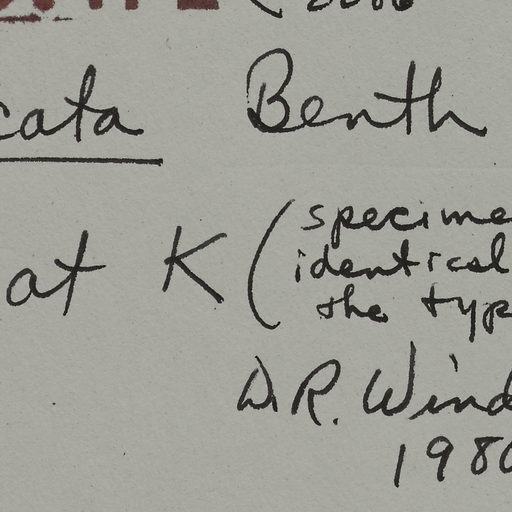 cata Benth
at K (specime
identical
the typ
D.R. Wind
1980